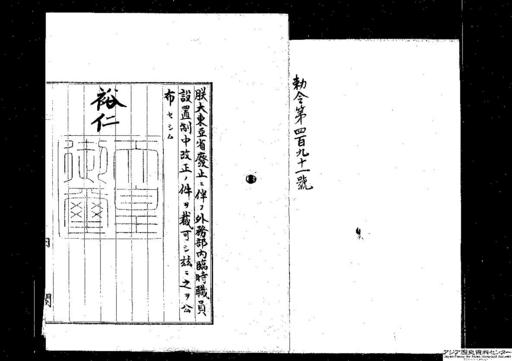 勅令第四百九十一號
朕大東亞省廢止ニ伴フ外務部内臨時職員
設置制中改正ノ件ヲ裁可シ玆ニ之ヲ公
布セシム
裕仁
天皇
御璽
内閣
アジア歴史資料センター